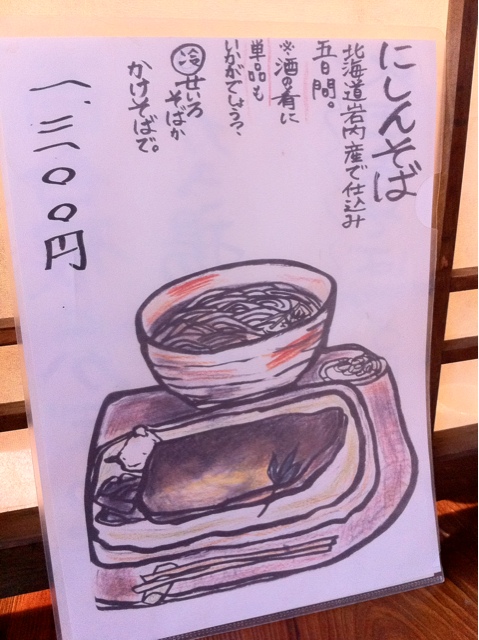 にしんそば
北海道岩内産で仕込み
五日間。
※酒の肴に
単品も
いかがでしょう?
冷せいろ
そばか
かけそばで。
一、三〇〇円